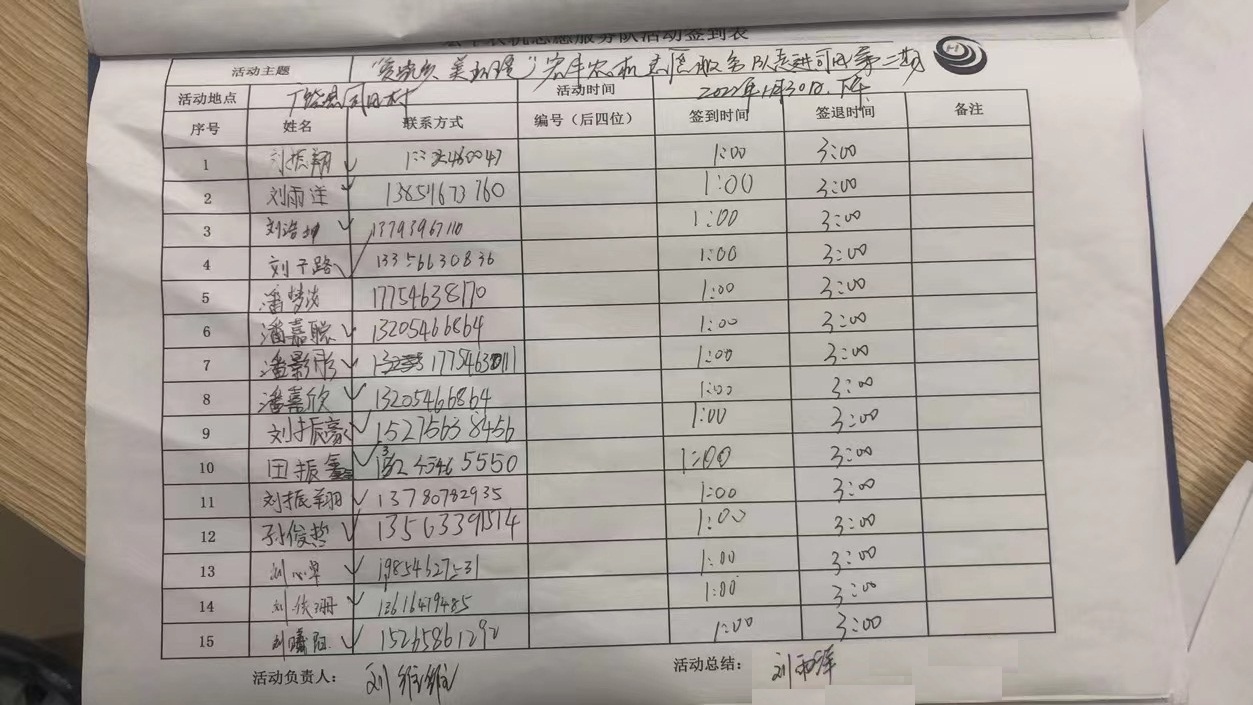 农机志愿服务队活动签到表
活动主题 宏丰农机志愿服务队走进司田第二期
活动地点 司田村 活动时间 2022年1月30日.下午
序号 姓名 联系方式 编号（后四位） 签到时间 签退时间 备注
1 刘振翔 1:00 3:00
2 刘雨洋 13854673760 1:00 3:00
3 刘浩坤 13793967110 1:00 3:00
4 刘子路 13356630836 1:00 3:00
5 潘梦涵 17754638170 1:00 3:00
6 潘嘉聪 13205466864 1:00 3:00
7 潘影彤 1:00 3:00
8 潘嘉欣 13205466864 1:00 3:00
9 刘振豪 15275638456 1:00 3:00
10 田振鑫 1:00 3:00
11 刘振翔 13780782935 1:00 3:00
12 孙俊哲 13563391514 1:00 3:00
13 1:00 3:00
14 13616479485 1:00 3:00
15 刘曦阳 15265861292 1:00 3:00
活动负责人： 刘维维 活动总结： 刘雨洋